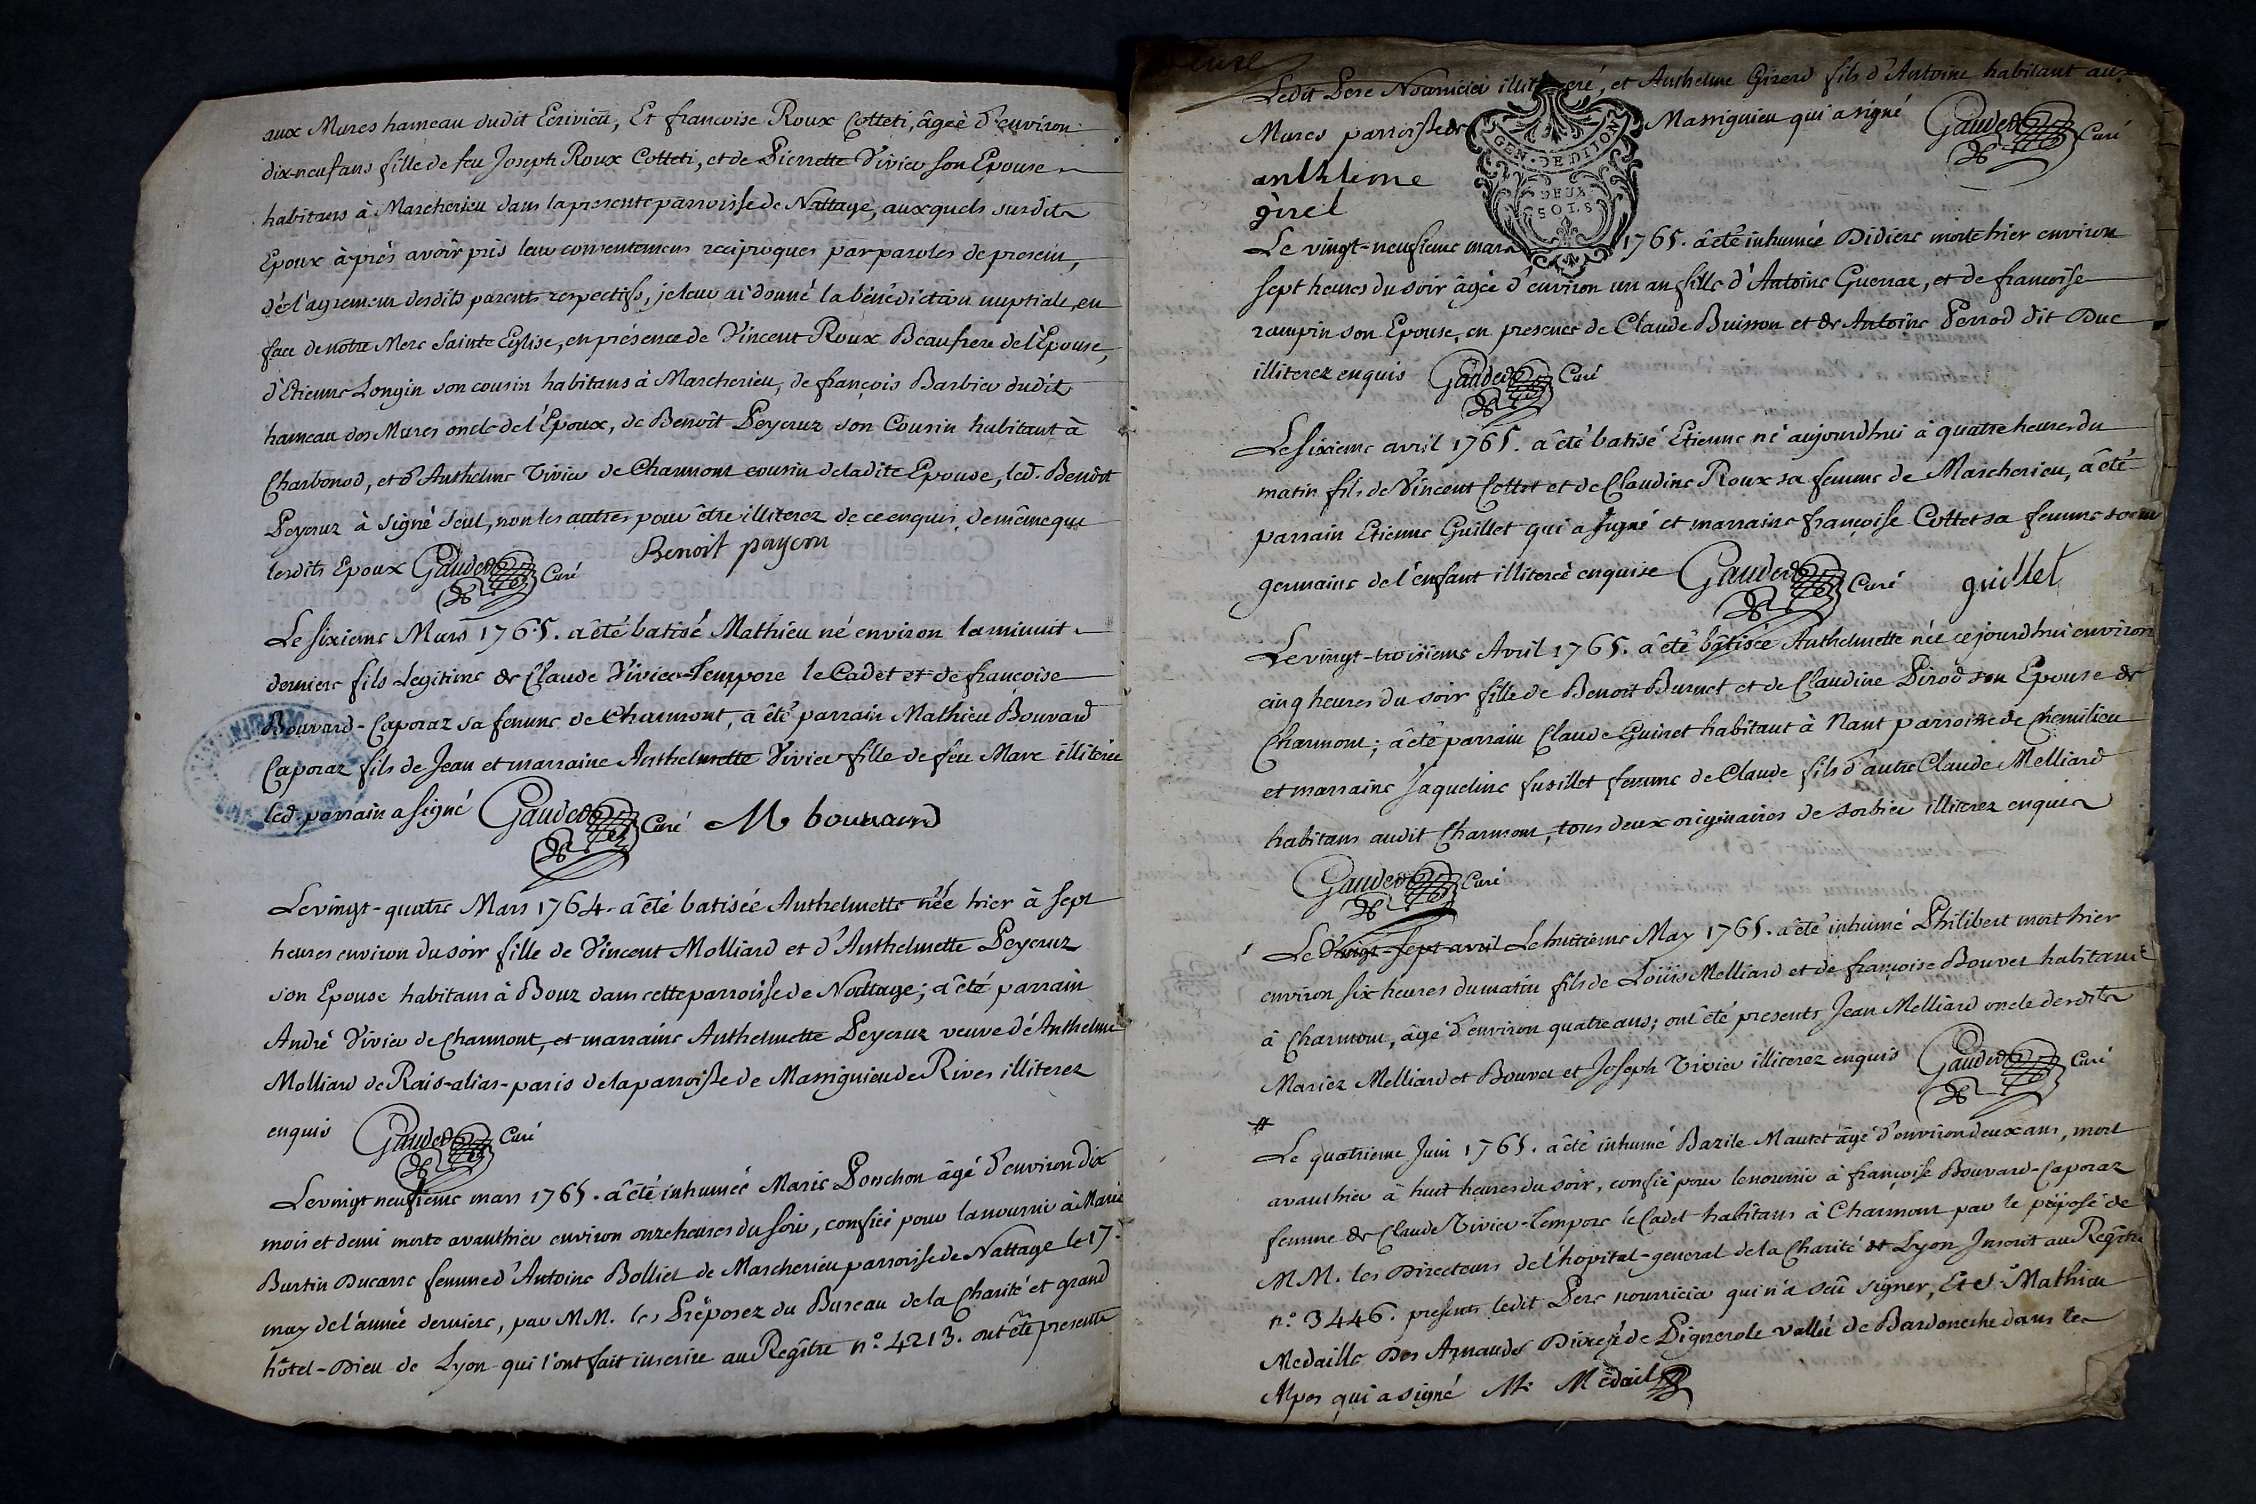 aux Mures hameau dudit Ecrivieu, Et francoise Roux Cotteti, âgée d'environ
dix-neuf ans fille de feu Joseph Roux Cotteti, et de Pierrette Vivier son Epouse
habitans à Marcherieu dans la presente parroisse de Nattage, auxquels susdits
Epoux âprés avoir pris leur consentemens reciproques par paroles de present,
dés l'agrement desdits parents respectifs, je leur ai donné la bénédiction nuptiale, en
face de notre Mere Sainte Eglise, en présence de Vincent Roux Beaufrere de l'Epouse,
d'Etienne Longin son cousin habitans à Marcherieu, de françois Barbier dudit
hameau des Mures oncle de l'Epoux, de Benoît Peycruz son Cousin habitant à
Charbonod, et d'Anthelme Vivier de Charmont cousin de ladite Epouse, led. Benoît
Peycruz à signé seul, non les autres pour être illiterez de ce enquis, de même que
lesdits Epoux Gaudet Curé Benoit paycru
Le sixieme Mars 1765. a êté batisé Mathieu né environ la minuit
derniere fils Legitime de Claude Vivier-Lempore le Cadet et de françoise
Bouvard-Caporaz sa femme de Charmont, à êté parrain Mathieu Bouvard
Caporaz fils de Jean et marraine Anthelmette Vivier fille de feu Marc illiterée
led parrain a signé Gaudet Curé M bouvard
Le vingt-quatre Mars 1764. a êté batisée Anthelmette née hier à sept
heures environ du soir fille de Vincent Molliard et d'Anthelmette Peycruz
son Epouse habitans à Bouz dans cette parroisse de Nattage; a êté parrain
André Vivier de Charmont, et marraine Anthelmette Peycruz veuve d'Anthelme
Molliard de Rais-alias-paris de la parroisse de Massignieu de Rives illiterez
enquis Gaudet Curé
Le vingt neufieme mars 1765. a êté inhumée Marie Ponchon âgé d'environ dix
mois et demi morte avanthier environ onze heures du soir, confiée pour la nourrir à Marie
Burtin Ducarre femme d'Antoine Bolliet de Marcherieu parroisse de Nattage le 17.
may de l'année derniere, par MM. les Préposez du Bureau de la Charité et grand
hôtel-Dieu de Lyon qui l'ont fait inscrire au Regître n.º 4213. ont êté presents
Ledit Pere Nourricier illiteré, et Anthelme Girerd fils d'Antoine habitant aux
Mures parroisse de Massignieu qui a signé Gaudet Curé
GEN. DE DIJON
DEUX
SOLS
anthleme
girel
Le vingt-neufieme mars 1765. a êté inhumée Didiere morte hier environ
sept heures du soir âgée d'environ un an fille d'Antoine Guerraz, et de françoise
rampin son Epouse, en presence de Claude Buisson et de Antoine Perrod dit Duc
illiterez enquis Gaudet Curé
Le sixieme avril 1765. a êté batisé Etienne né aujourdhui à quatre heures du
matin fils de Vincent Cottet et de Claudine Roux sa femme de Marcherieu, à êté
parrain Etienne Guillet qui a signé et marraine françoise Cottet sa femme soeur
germaine de l'enfant illiterée enquise Gaudet Curé guillet
Le vingt-troisieme Avril 1765. a êté bâtisée Anthelmette née ce jourdhui environ
cinq heures du soir fille de Benoit Burnet et de Claudine Pirod son Epouse de
Charmont; a êté parrain Claude Guinet habitant à Nant parroisse de Chemilieu
et marraine Jaqueline fusillet femme de Claude fils d'autre Claude Melliard
habitans audit Charmont, tous deux originaires de Sorbier illiterez enquis
Gaudet Curé
Le Vingt-sept avril Le huitieme May 1765. a êté inhumé Philibert mort hier
environ six heures du matin fils de Loüis Melliard et de françoise Bouvet habitans
à Charmont, âgé d'environ quatre ans; ont êté presents Jean Melliard oncle desdits
Mariez Melliard et Bouvet et Joseph Vivier illiterez enquis Gaudet Curé
Le quatrieme Juin 1765. a êté inhumé Bazile Mautet âgé d'environ deux ans, mort
avanthier à huit heures du soir, confié pour le nourrir à françoise Bouvard-Caporaz
femme de Claude Vivier-Lempore le Cadet habitans à Charmont par le préposé de
MM. les Directeurs de l'hopital-general de la Charité de Lyon Inscrit au Regître
n.º 3446. presents ledit Pere nourricier qui n'a seû signer, Et S.r Mathieu
Medaille Des Arnauds Diocèse de Pignerole vallée de Bardoneche dans les
Alpes qui a signé M. Medail